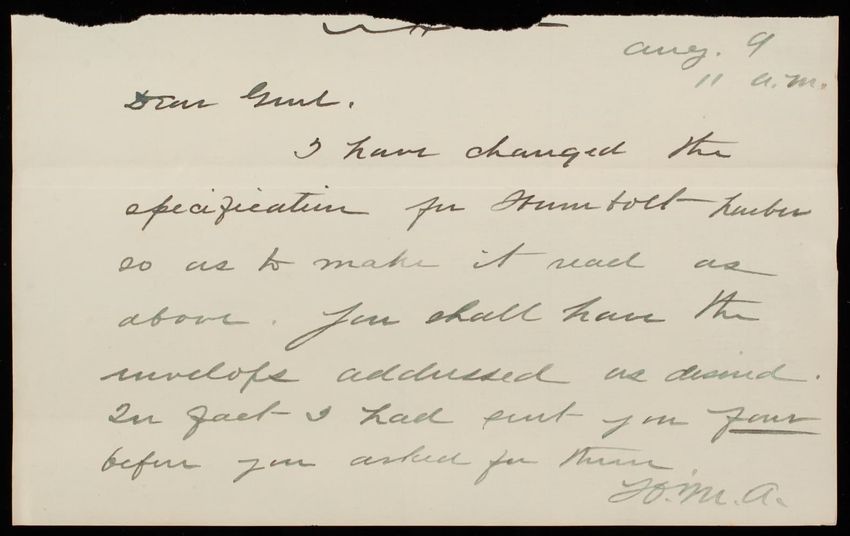 Aug. 9
11 a.m.
Dear Genl.
I have changed the
specification for Humbolt harbor
so as to make it read as
above. You shall have the
envelops addressed as desired.
In fact I had sent you four
before you asked for them
H. M. A.